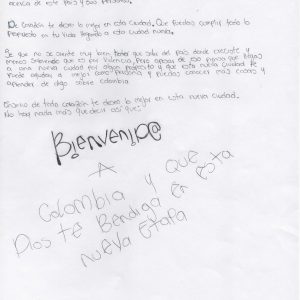 acerca de este país y sus personas.
De corazón te deseo lo mejor en esta ciudad. Que puedas cumplir todo lo
propuesto en tu vida llegando a esta ciudad nueva.
Se que no se siente muy bien tener que salir del país donde creciste y
menos sabiendo que es por violencia. Pero apesar de eso pienso que llegas
a una nueva ciudad por algún proposito y que esta nueva ciudad te
puede ayudar a mejor como persona y puedas conocer mas cosas y
aprender de algo sobre colombia
de todo corazón te deseo lo mejor en esta nueva ciudad.
No hay nada mas que decir asi que:
Bienvenid@
A
Colombia y que
Dios te Bendiga en esta
nueva Etapa